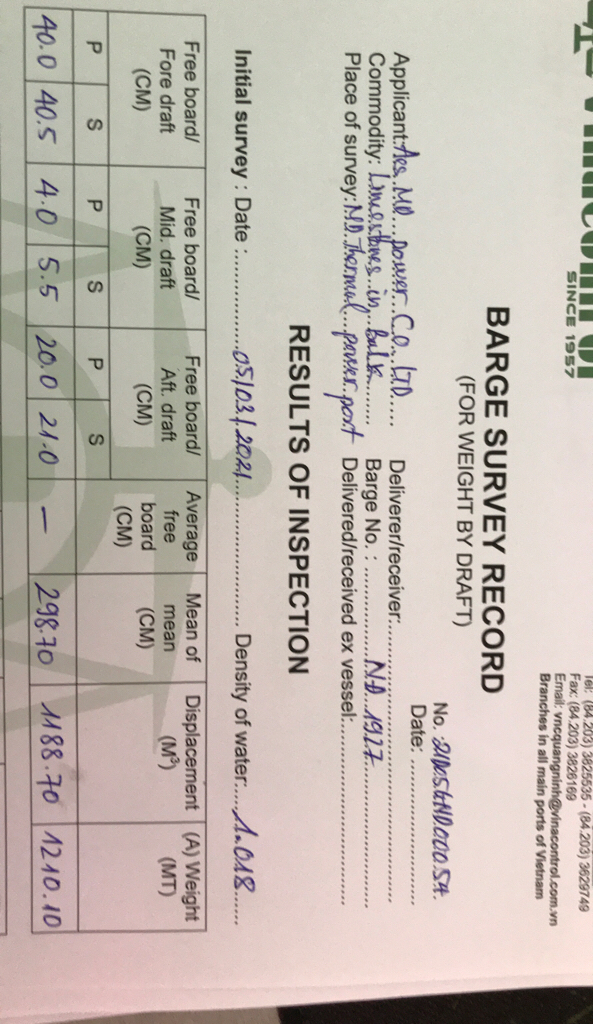 SINCE 1957
Tel: (84.203) 3825535 - (84.203) 3629749
Fax: (84.203) 3826169
Email: vncquangninh@vinacontrol.com.vn
Branches in all main ports of Vietnam
BARGE SURVEY RECORD
(FOR WEIGHT BY DRAFT)
No.:
Date:
Applicant: Aes. MD.. power. Co. LTD Deliverer/receiver
Commodity: Limestones in bulk Barge No. : NĐ 1927
Place of survey: MD. Thermal power port Delivered/received ex vessel:
RESULTS OF INSPECTION
Initial survey : Date : 05/03/2021 Density of water: 1.018
Free board/ Fore draft (CM) Free board/ Mid. draft (CM) Free board/ Aft. draft (CM) Average free board (CM) Mean of mean (CM) Displacement (M³) (A) Weight (MT)
P S P S P S
40.0 40.5 4.0 5.5 20.0 21.0 — 298.70 1188.70 1210.10